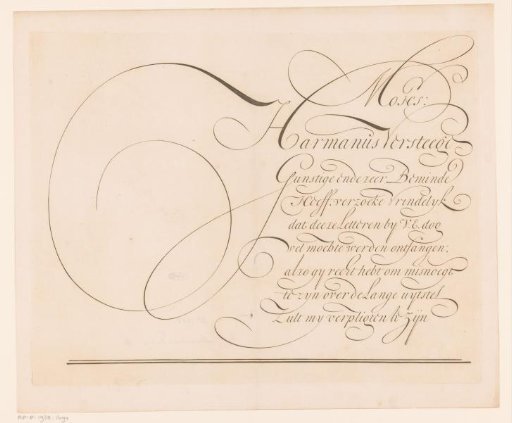 Moses:
Harmanus Versteege
Gunstige ende zeer Beminde
verzoeke Vrindelyk
dat deeze letteren by V.E. doo
vel mochte werden ontfangen;
alzo gy recht hebt om misnoegt
te zyn over de lange uytstel
Zult my verpligten te Zyn